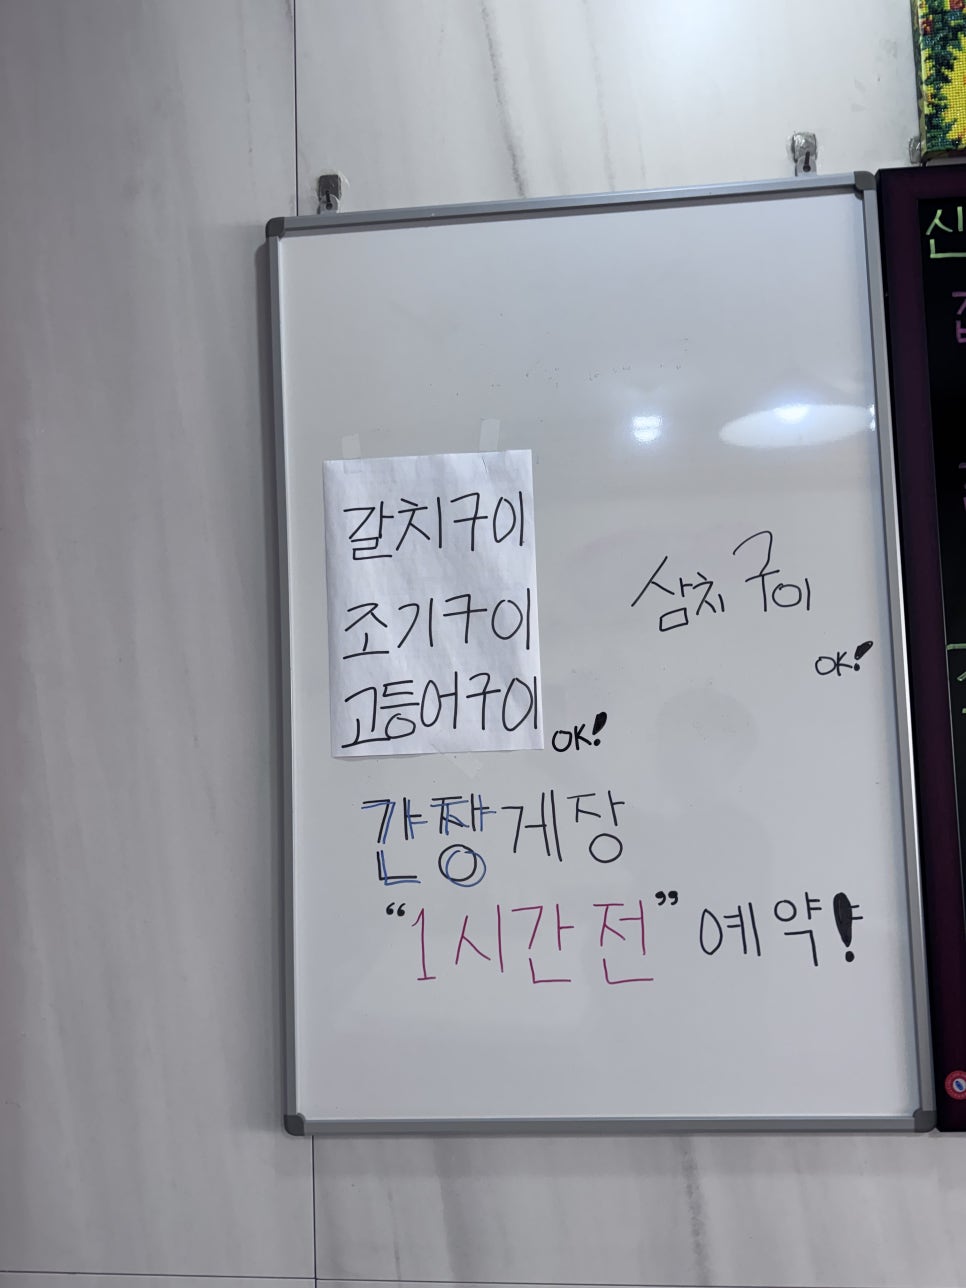 갈치구이
조기구이
고등어구이
OK!
삼치구이
OK!
간장게장
“1시간 전” 예약!
신